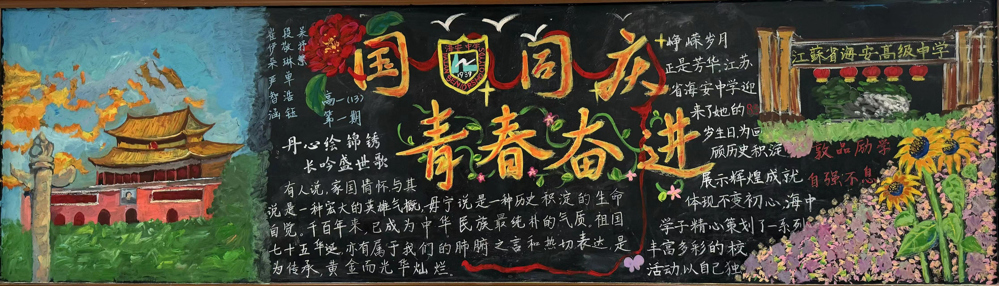 国 同庆
青春奋进
海安中学
1939
高一(13)
第一期
丹心绘锦绣
长吟盛世歌
有人说，家国情怀与其
说是一种宏大的英雄气概，毋宁说是一种历史积淀的生命
自觉。千百年来，已成为中华民族最纯朴的气质。祖国
七十五华诞，亦有属于我们的肺腑之言和热切表达，是
为传承，黄金而光华灿烂。
峥嵘岁月
正是芳华，江苏
省海安中学迎
来了她的
岁生日，为回
顾历史积淀
展示辉煌成就
体现不变初心，海中
学子精心策划了一系列
丰富多彩的校
活动以自己独
江蘇省海安高级中学
敦品励学
自强不息